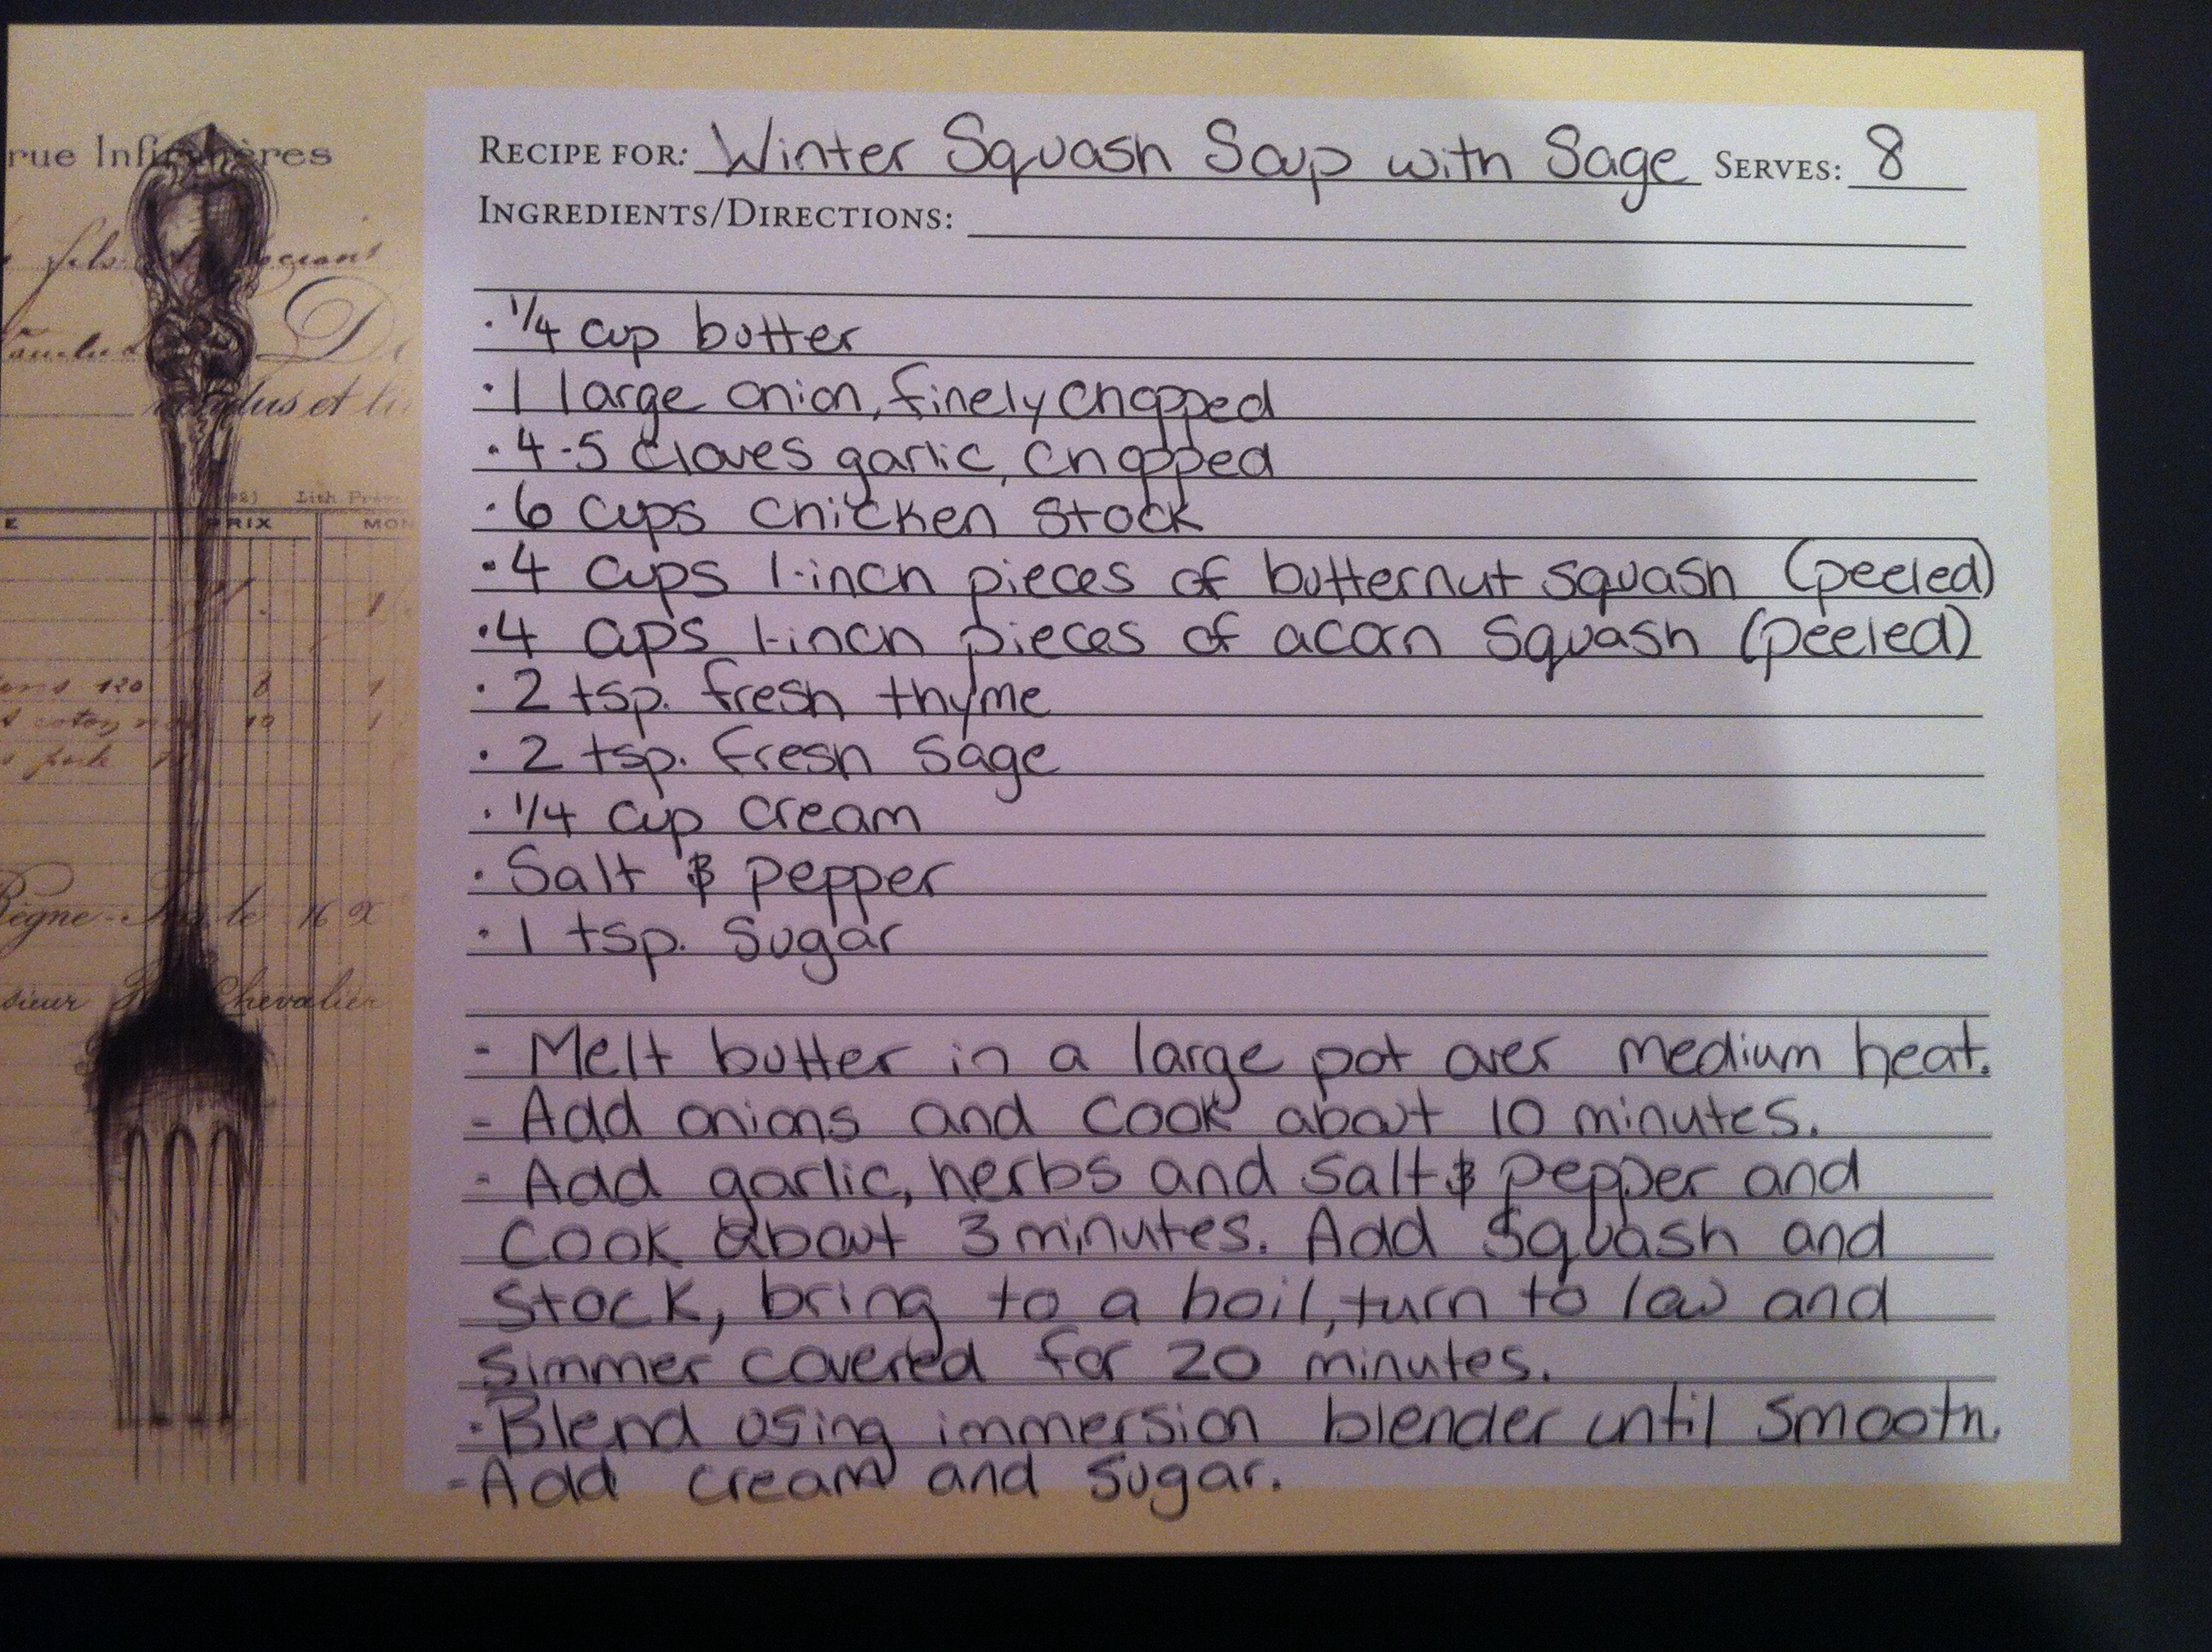 rue Infirmières
fels
D
dus et li
Lith.
E PRIX MON
120 8 1
10 1
Règne 16
sieur Chevalier
RECIPE FOR: Winter Squash Soup with Sage SERVES: 8
INGREDIENTS/DIRECTIONS:
· 1/4 cup butter
· 1 large onion, finely chopped
· 4-5 cloves garlic, chopped
· 6 cups chicken stock
· 4 cups 1-inch pieces of butternut squash (peeled)
· 4 cups 1-inch pieces of acorn squash (peeled)
· 2 tsp. fresh thyme
· 2 tsp. fresh sage
· 1/4 cup cream
· Salt & pepper
· 1 tsp. sugar
- Melt butter in a large pot over medium heat.
- Add onions and cook about 10 minutes.
- Add garlic, herbs and salt & pepper and
cook about 3 minutes. Add squash and
stock, bring to a boil, turn to low and
simmer covered for 20 minutes.
- Blend using immersion blender until smooth.
- Add cream and sugar.